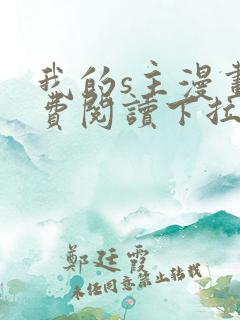 我的s主漫畫
費閱讀下拉
鄭廷霞
未经同意禁止转载